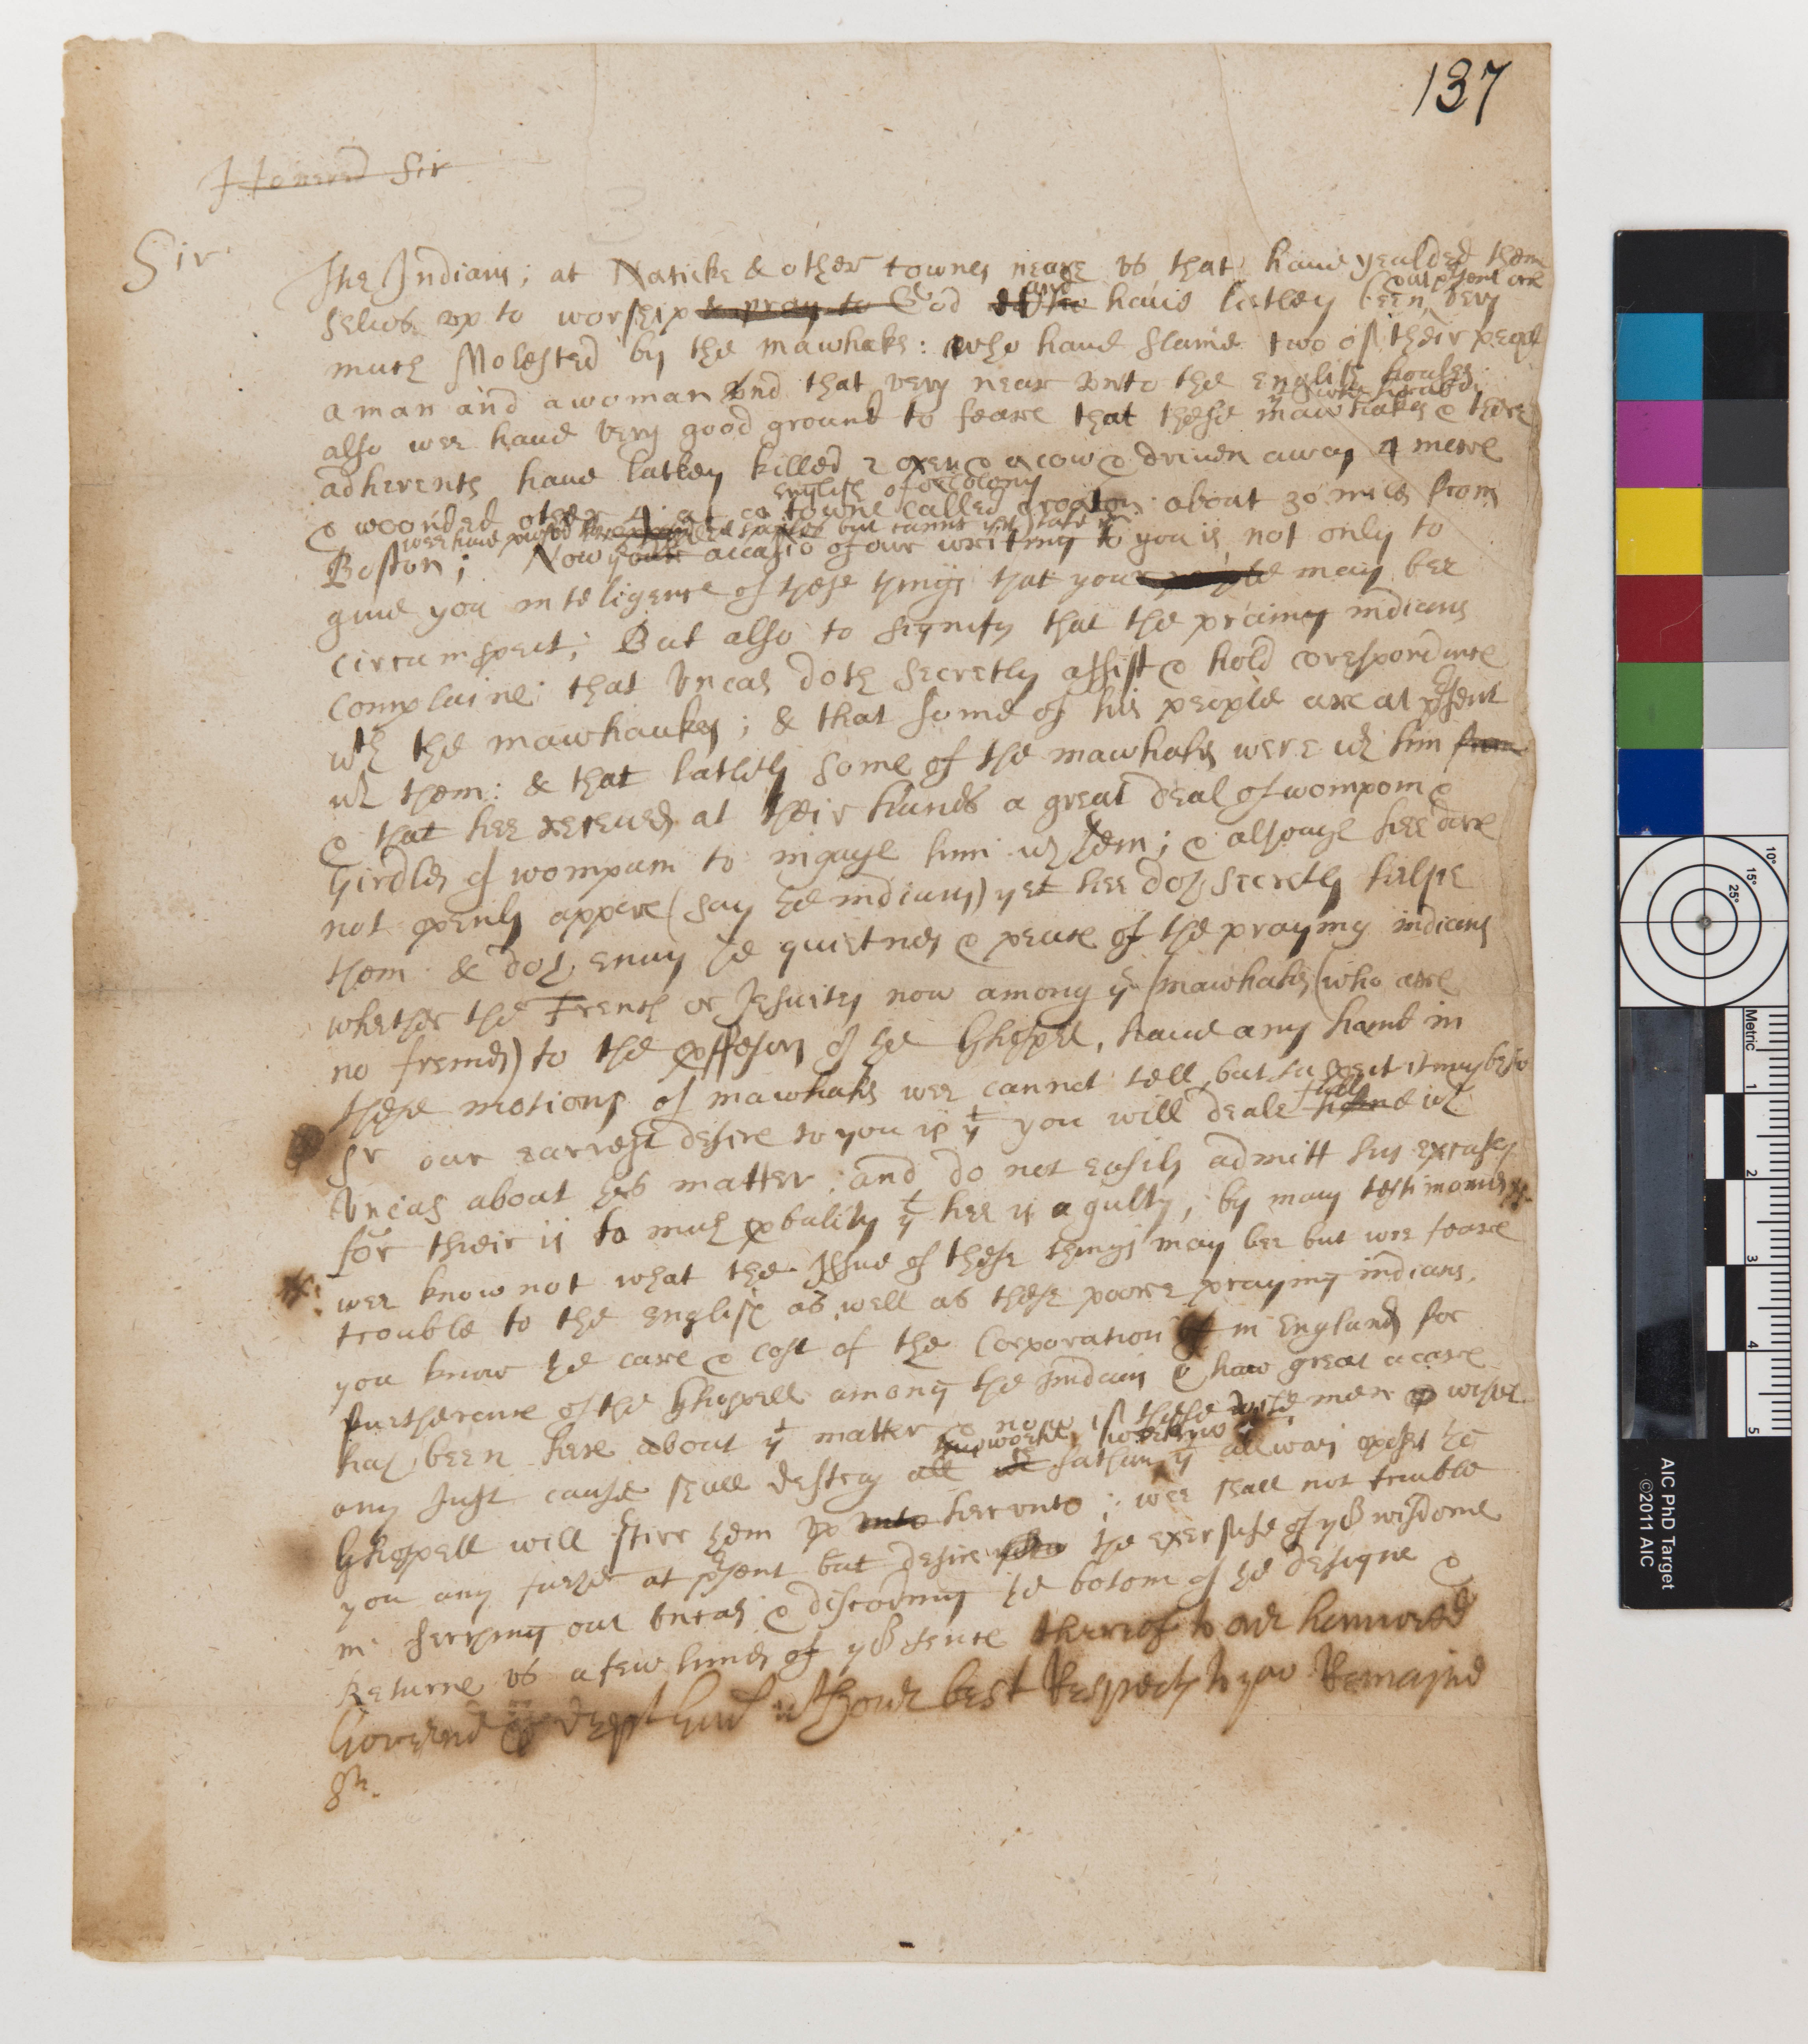 137
Honered Sir
Sir
The Indians; at Naticke & other townes neare vs that haue yealded them
selves vp to worship & pray to God and haue latley been very
& at psent are
much Molested by the mawhaks: who haue slaine two of their peopl
a man and a woman and that very near vnto the english houses
also wee haue very good ground to feare that these mawhakes & there
adherents haue latley killed 2 oxen & a cow & driuen away 4 more
english of or Colony
& woonded other 4 at a towne called Groaton about 30 miles from
wee haue
Boston; Now your occasio of our writing to you is not only to
giue you inteligence of these things that your people may bee
circumspect; But also to signify that the praing indians
complaine that Vncas doth secretly assist & hold corespondence
wth the mawhaukes; & that some of his people are at psent
wth them: & that latley some of the mawhaks were wth him from
& that hee receued at their hands a great deal of wompom &
Girdles of wompam to ingage him wth them; & althouge hee dare
not openly appere (say the indians) yet hee doth secretly helpe
them & doth enuy the quietnes & peace of the praying indians
whether the French or Jesuites now among ye mawhaks (who are
no freinds) to the professors of the Ghospel, haue any hand in
these motions of mawhaks wee cannot tell but suspect it may be so
Sr our earnest desire to you is yt you will deale wth
Vncas about this matter: and do not easily admitt his excuses
for their is to much pbality yt hee is a gulty, by many testimonies
wee know not what the Issue of these things may bee but wee feare
trouble to the english as well as these poore praying indians.
you know the care & cost of the Corporation of in England for
furtherance of the Ghospell among the Indians & how great a care
hath been here about yt matter & now if these wild men without
any Just cause shall destroy all sathan yt allways oposes the
Ghospell will stirr them vp vnto hervnto; wee shall not trouble
you any further at psent but desire the exersise of yor wisdome
in serching out Vncas & discovering the botom of the designe &
Returne vs a few lines of yor sence thereof to our honnored
Governor & Dept Leaving wth our best Respects to you Remajne
Sr.